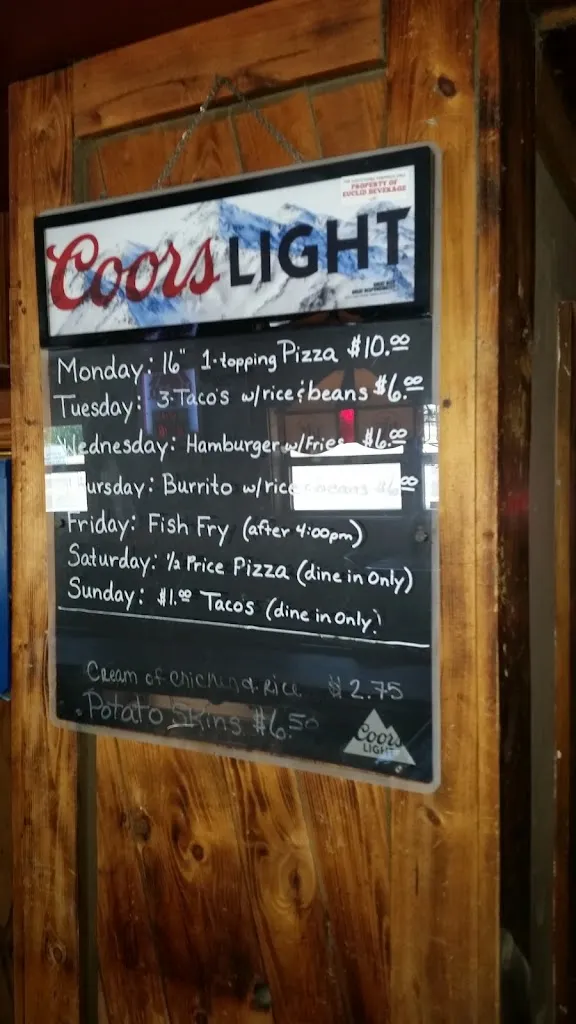 PROPERTY OF
EUCLID BEVERAGE
Coors LIGHT
Monday: 16" 1-topping Pizza $10.00
Tuesday: 3-Taco's w/rice & beans $6.00
Wednesday: Hamburger w/Fries $6.00
Thursday: Burrito w/rice & beans $6.00
Friday: Fish Fry (after 4:00pm)
Saturday: 1/2 Price Pizza (dine in Only)
Sunday: $1.00 Tacos (dine in Only)
Cream of chicken & Rice $2.75
Potato Skins $6.50
Coors
LIGHT